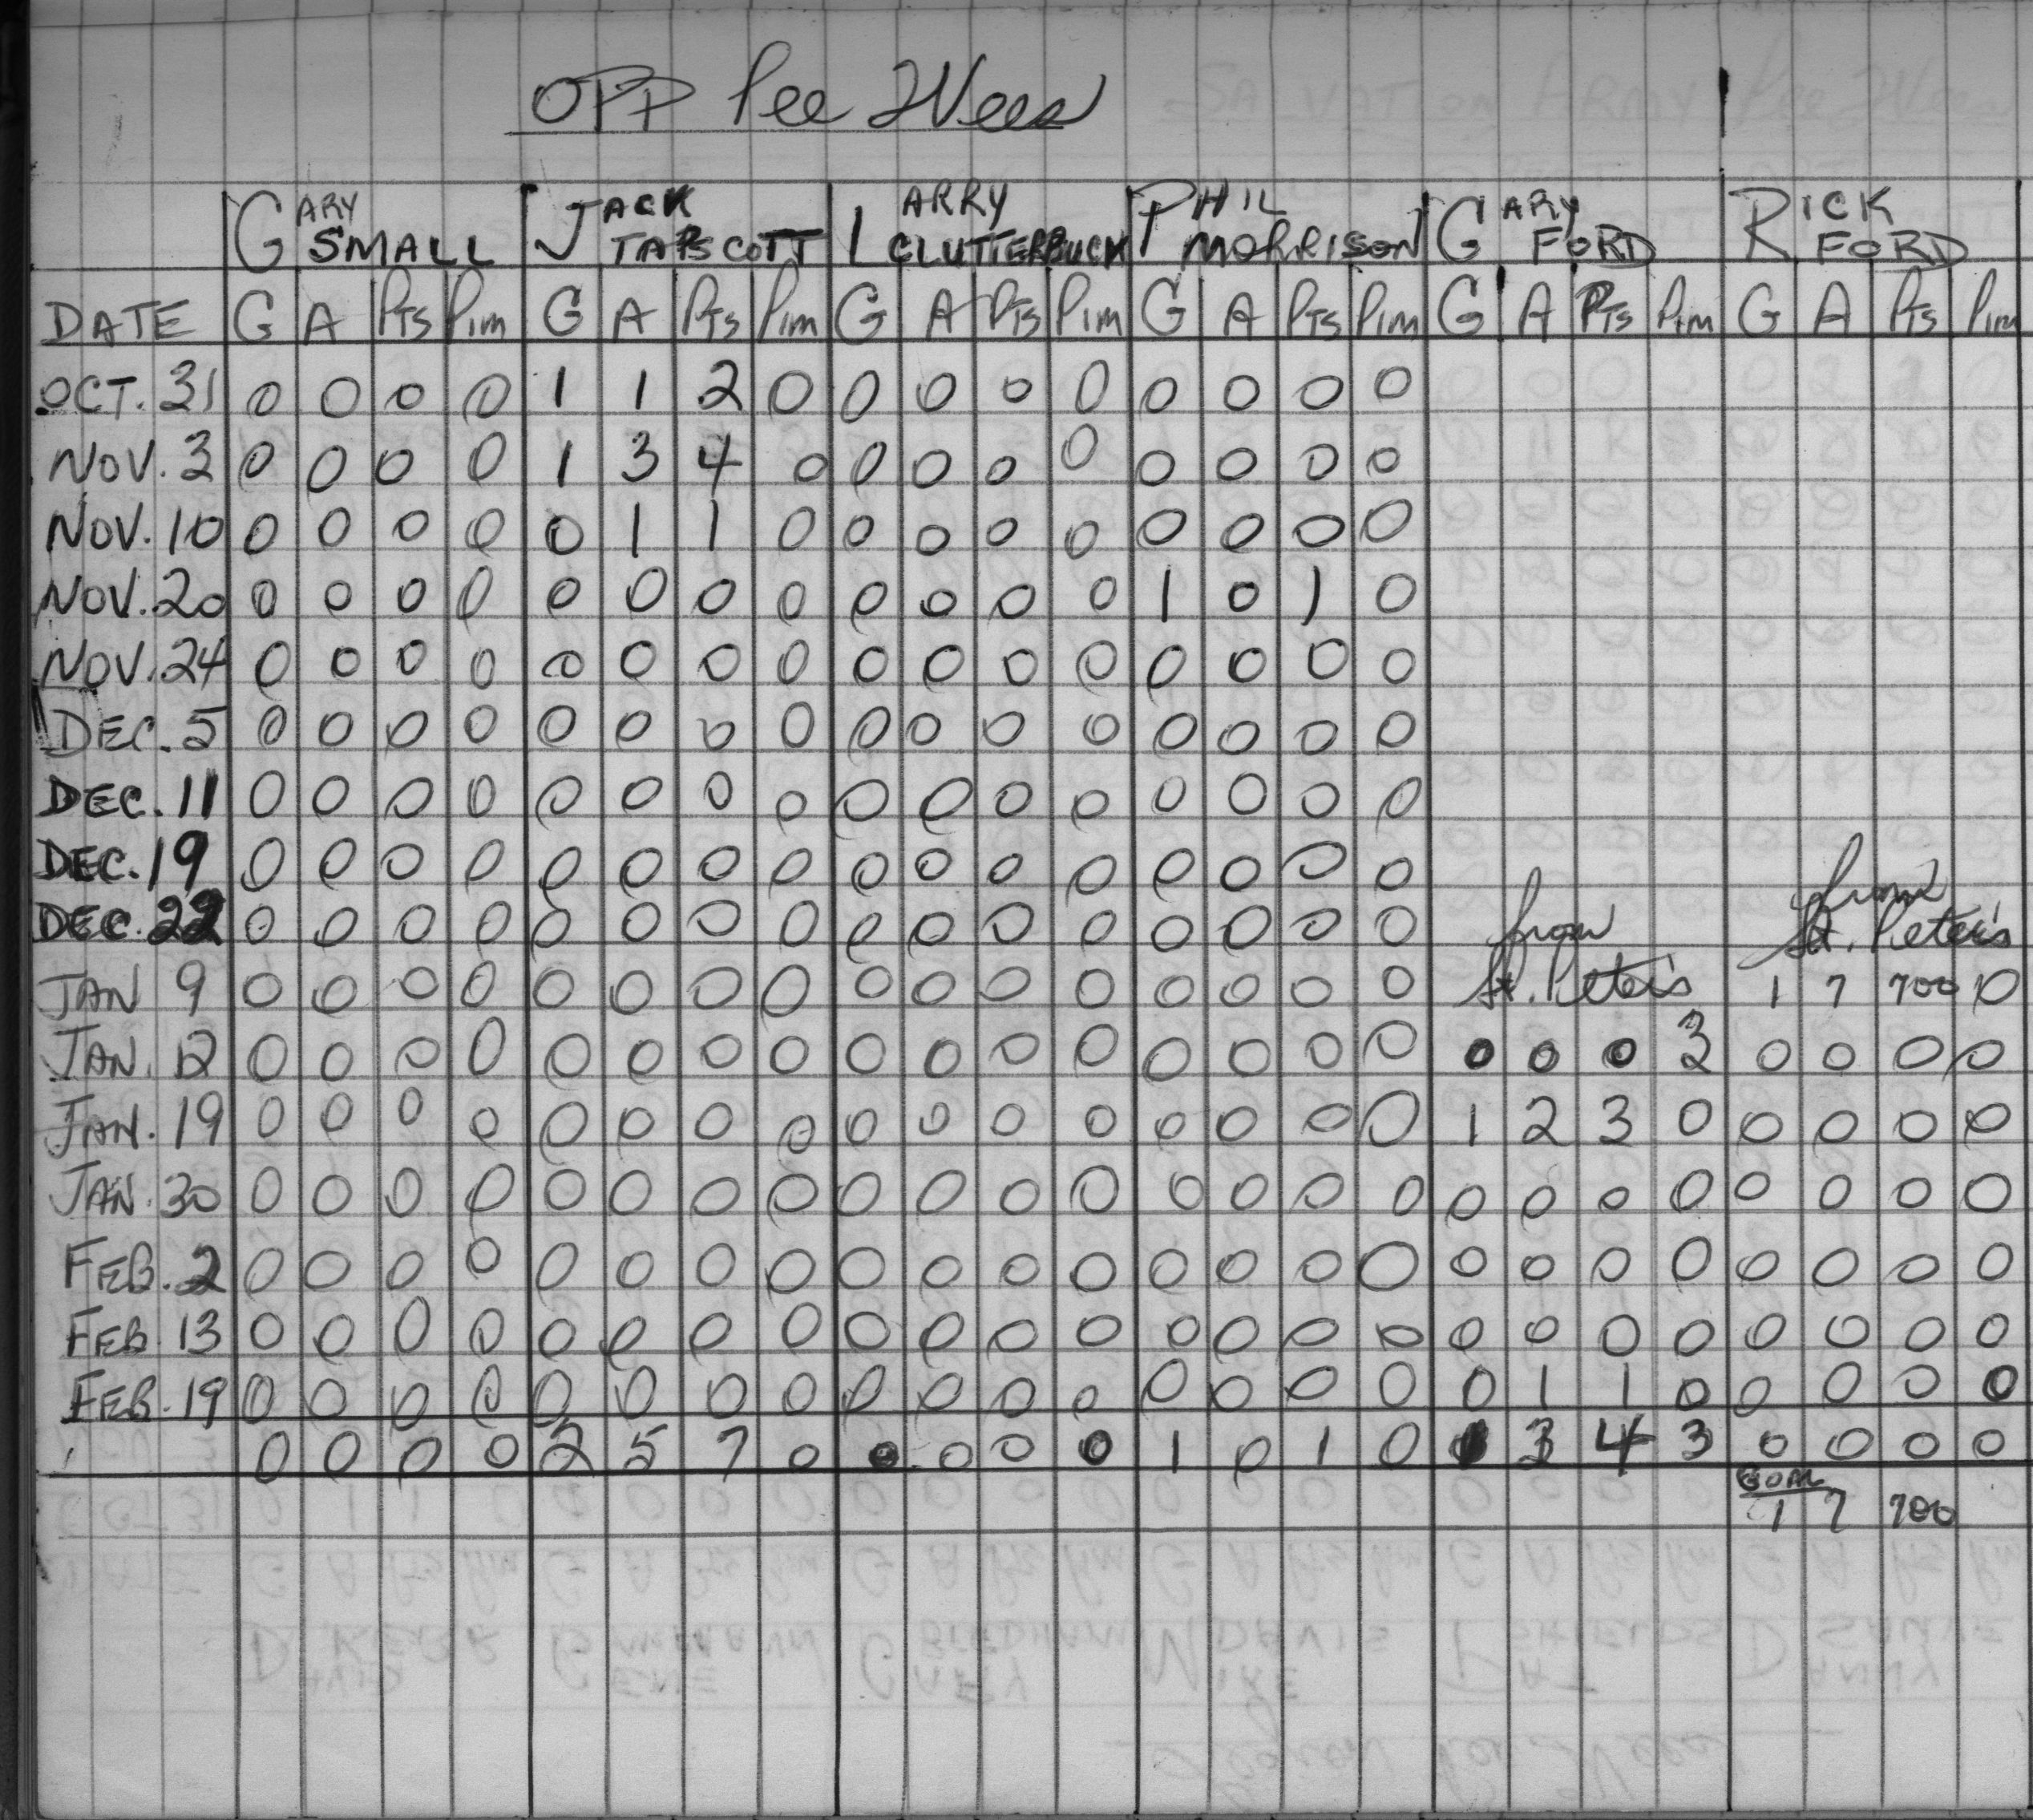 OPP Pee Wees
GARY SMALL JACK TAPSCOTT LARRY CLUTTERBUCK PHIL MORRISON GARY FORD RICK FORD
DATE G A Pts Pim G A Pts Pim G A Pts Pim G A Pts Pim G A Pts Pim G A Pts Pim
OCT. 31 0 0 0 0 1 1 2 0 0 0 0 0 0 0 0 0
NOV. 3 0 0 0 0 1 3 4 0 0 0 0 0 0 0 0 0
NOV. 10 0 0 0 0 0 1 1 0 0 0 0 0 0 0 0 0
NOV. 20 0 0 0 0 0 0 0 0 0 0 0 0 1 0 1 0
NOV. 24 0 0 0 0 0 0 0 0 0 0 0 0 0 0 0 0
DEC. 5 0 0 0 0 0 0 0 0 0 0 0 0 0 0 0 0
DEC. 11 0 0 0 0 0 0 0 0 0 0 0 0 0 0 0 0
DEC. 19 0 0 0 0 0 0 0 0 0 0 0 0 0 0 0 0
DEC. 22 0 0 0 0 0 0 0 0 0 0 0 0 0 0 0 0 from from St. Peter's
JAN 9 0 0 0 0 0 0 0 0 0 0 0 0 0 0 0 0 St. Peter's 1 7 700 0
JAN. 12 0 0 0 0 0 0 0 0 0 0 0 0 0 0 0 0 0 0 0 3 0 0 0 0
JAN. 19 0 0 0 0 0 0 0 0 0 0 0 0 0 0 0 0 1 2 3 0 0 0 0 0
JAN. 30 0 0 0 0 0 0 0 0 0 0 0 0 0 0 0 0 0 0 0 0 0 0 0 0
FEB. 2 0 0 0 0 0 0 0 0 0 0 0 0 0 0 0 0 0 0 0 0 0 0 0 0
FEB. 13 0 0 0 0 0 0 0 0 0 0 0 0 0 0 0 0 0 0 0 0 0 0 0 0
FEB. 19 0 0 0 0 0 0 0 0 0 0 0 0 0 0 0 0 0 1 1 0 0 0 0 0
0 0 0 0 2 5 7 0 0 0 0 0 1 0 1 0 1 3 4 3 0 0 0 0
1 7 700